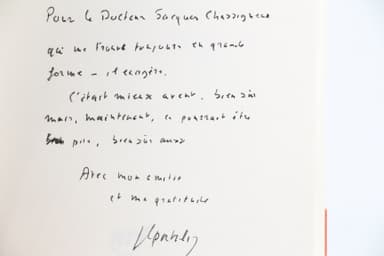 Pour le Docteur Jacques Chassigneux
qui me trouve toujours en grande
forme - il exagère.
C'était mieux avant, bien sûr
mais, maintenant, ce pourrait être
pire, bien sûr aussi
Avec mon amitié
et ma gratitude